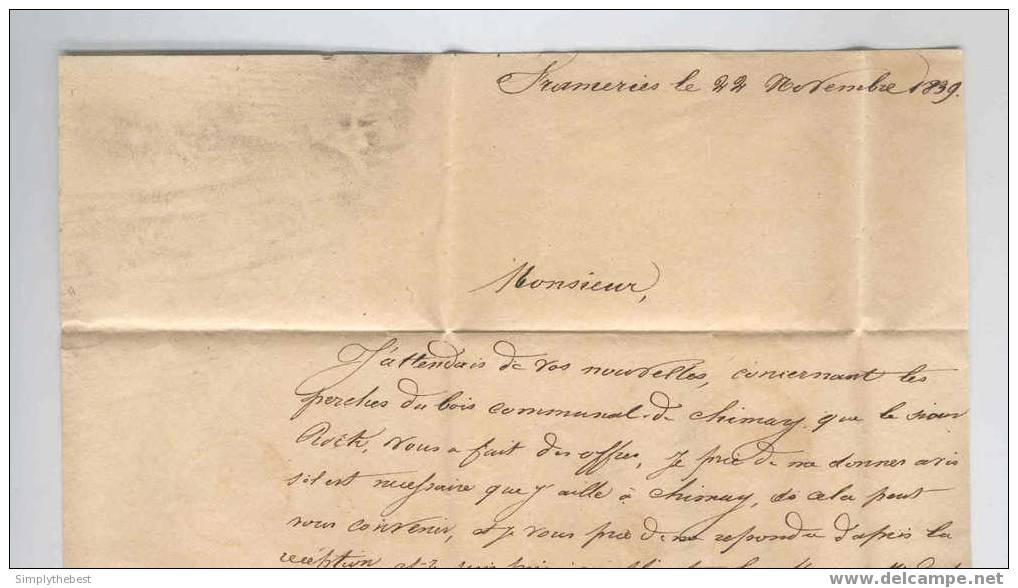 Frameries le 22 Novembre 1839.
Monsieur,
J'attendais de vos nouvelles, concernant les
perches du bois communal de Chimay que le sieur
Rock, vous a fait des offres, Je prie de me donner avis
s'il est necessaire que j'aille à Chimay, si cela peut
vous convenir, et Je vous prie de me repondre d'après la
réception
Simplythebest
www.delcampe.net